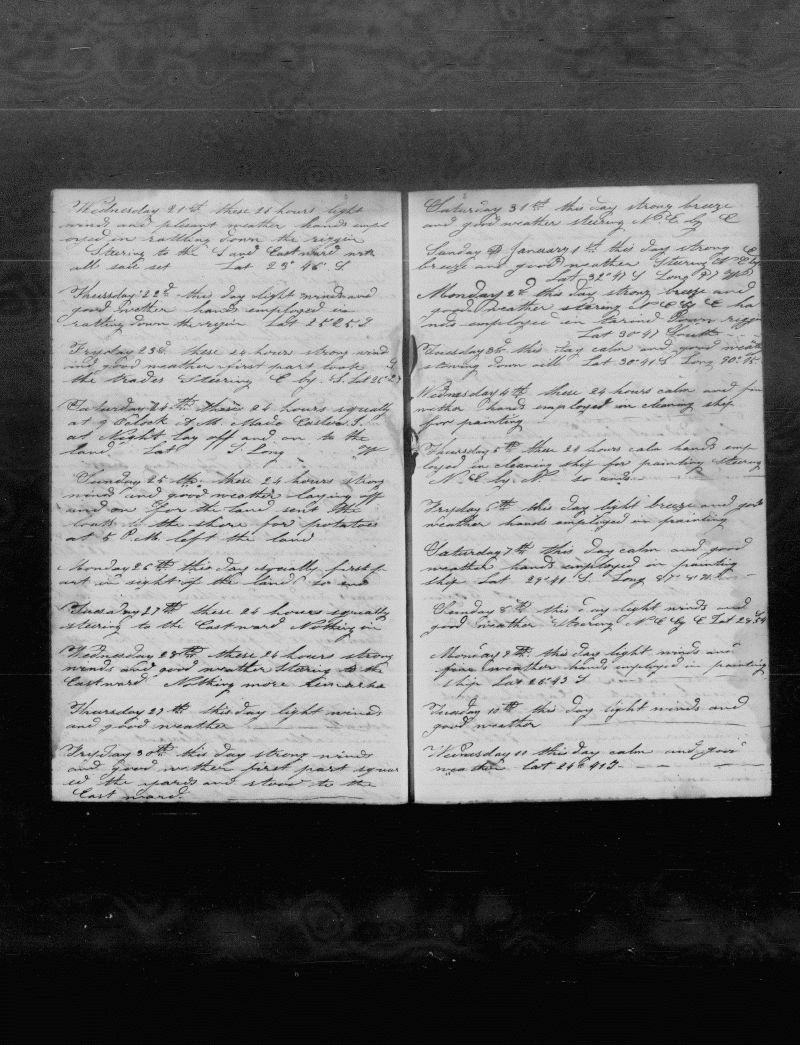 Wednesday 21st these 24 hours light
winds and pleasant weather hands empl
oyed in rattling down the rigin
Steering to the S and Eastward with
all sail set Lat 23° 46' S
Thursday 22d this day light winds and
good wether hands employed in
ratling down the rigin Lat 25° 25 S
Fryday 23d these 24 hours strong wind
and good weather first part took
the trades Steering E by S. Lat 26° 27
Saturday 24th these 24 hours squally
at 9 Oclock A M. Made Easter I.
at Night lay off and on to the
land Lat S Long W
Sunday 25 th. these 24 hours strong
wind and good weather laying off
and on for the land sent the
boats to the shore for potatoes
at 5 P.M. left the land
Monday 26th this day squally first p
art in sight of the land so end
Tuesday 27th these 24 hours squally
steering to the Eastward Nothing in
Wednesday 28th these 24 hours strong
winds and good weather Stering to the
Eastward Nothing more Remarks
Thursday 29th this day light winds
and good weather
Fryday 30th this day strong winds
and good wether first part squar
ed the yards and stood to the
East ward.
Saturday 31st this day strong breeze
and good weather steering N. E. by E
Sunday January 1th this day strong
breeze and good weather Stering N E by E
Lat 32° 47 S Long W
Monday 2d this day strong breeze and
good weather stering N E by E ha
nds employed in taring down riggin
Lat 30° 47 South
Tuesday 3th this day calm and good weath
stowing down oill Lat 30° 41 S Long 90° 15
Wednesday 4th these 24 hours calm and fin
wether hands employed in clearing ship
for painting
Thursday 5th these 24 hours calm hands emp
loyed in cleaning ship for painting Steering
N. E by N so ends
Fryday 6th this day light breeze and good
weather hands employed in painting
Saturday 7th this day calm and good
weather hands employed in painting
ship Lat 29° 41 S. Long 87°
Sunday 8th this day light winds and
good weather Staring N E by E Lat 28° 54
Monday 9th this day light winds and
fine weather hands employed in painting
ship Lat 26° 43 S
Tuesday 10th this day light winds and
good weather
Wednesday 11 this day calm and good
weather Lat 24° 41 S